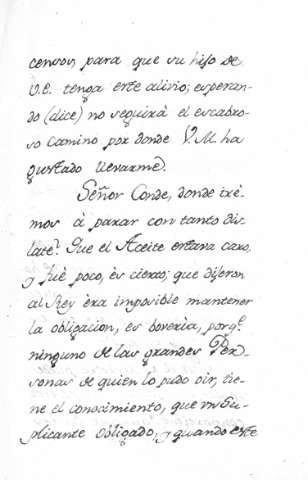 censor, para que su hijo de
V.E. tenga este alivio; esperan-
do (dice) no seguirà el escabro-
so camino por donde V.M. ha
gustado llevarme.
Señor Conde, donde irè-
mos à parar con tanto dis-
late? Que el Aceite estava caro,
y fuè poco, ès cierto; que dijeron
al Rey èra imposible mantener
la obligacion, es boveria, porq.e
ninguno de las grandes Per-
sonas de quien lo pudo oir, tie-
ne el conocimiento, que mi Su-
plicante obligado, y quando este